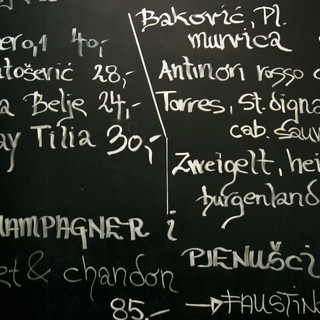 ero,1 40,-
tošerić 28,-
a Belje 24,-
ay Tilia 30,-
HAMPAGNER i
et & chandon
85.-
Baković, Pl.
murvica
Antinori rosso
Torres, St. digna
cab. sauv
Zweigelt, hei
burgenland
PJENUŠCI
→FAUSTINO